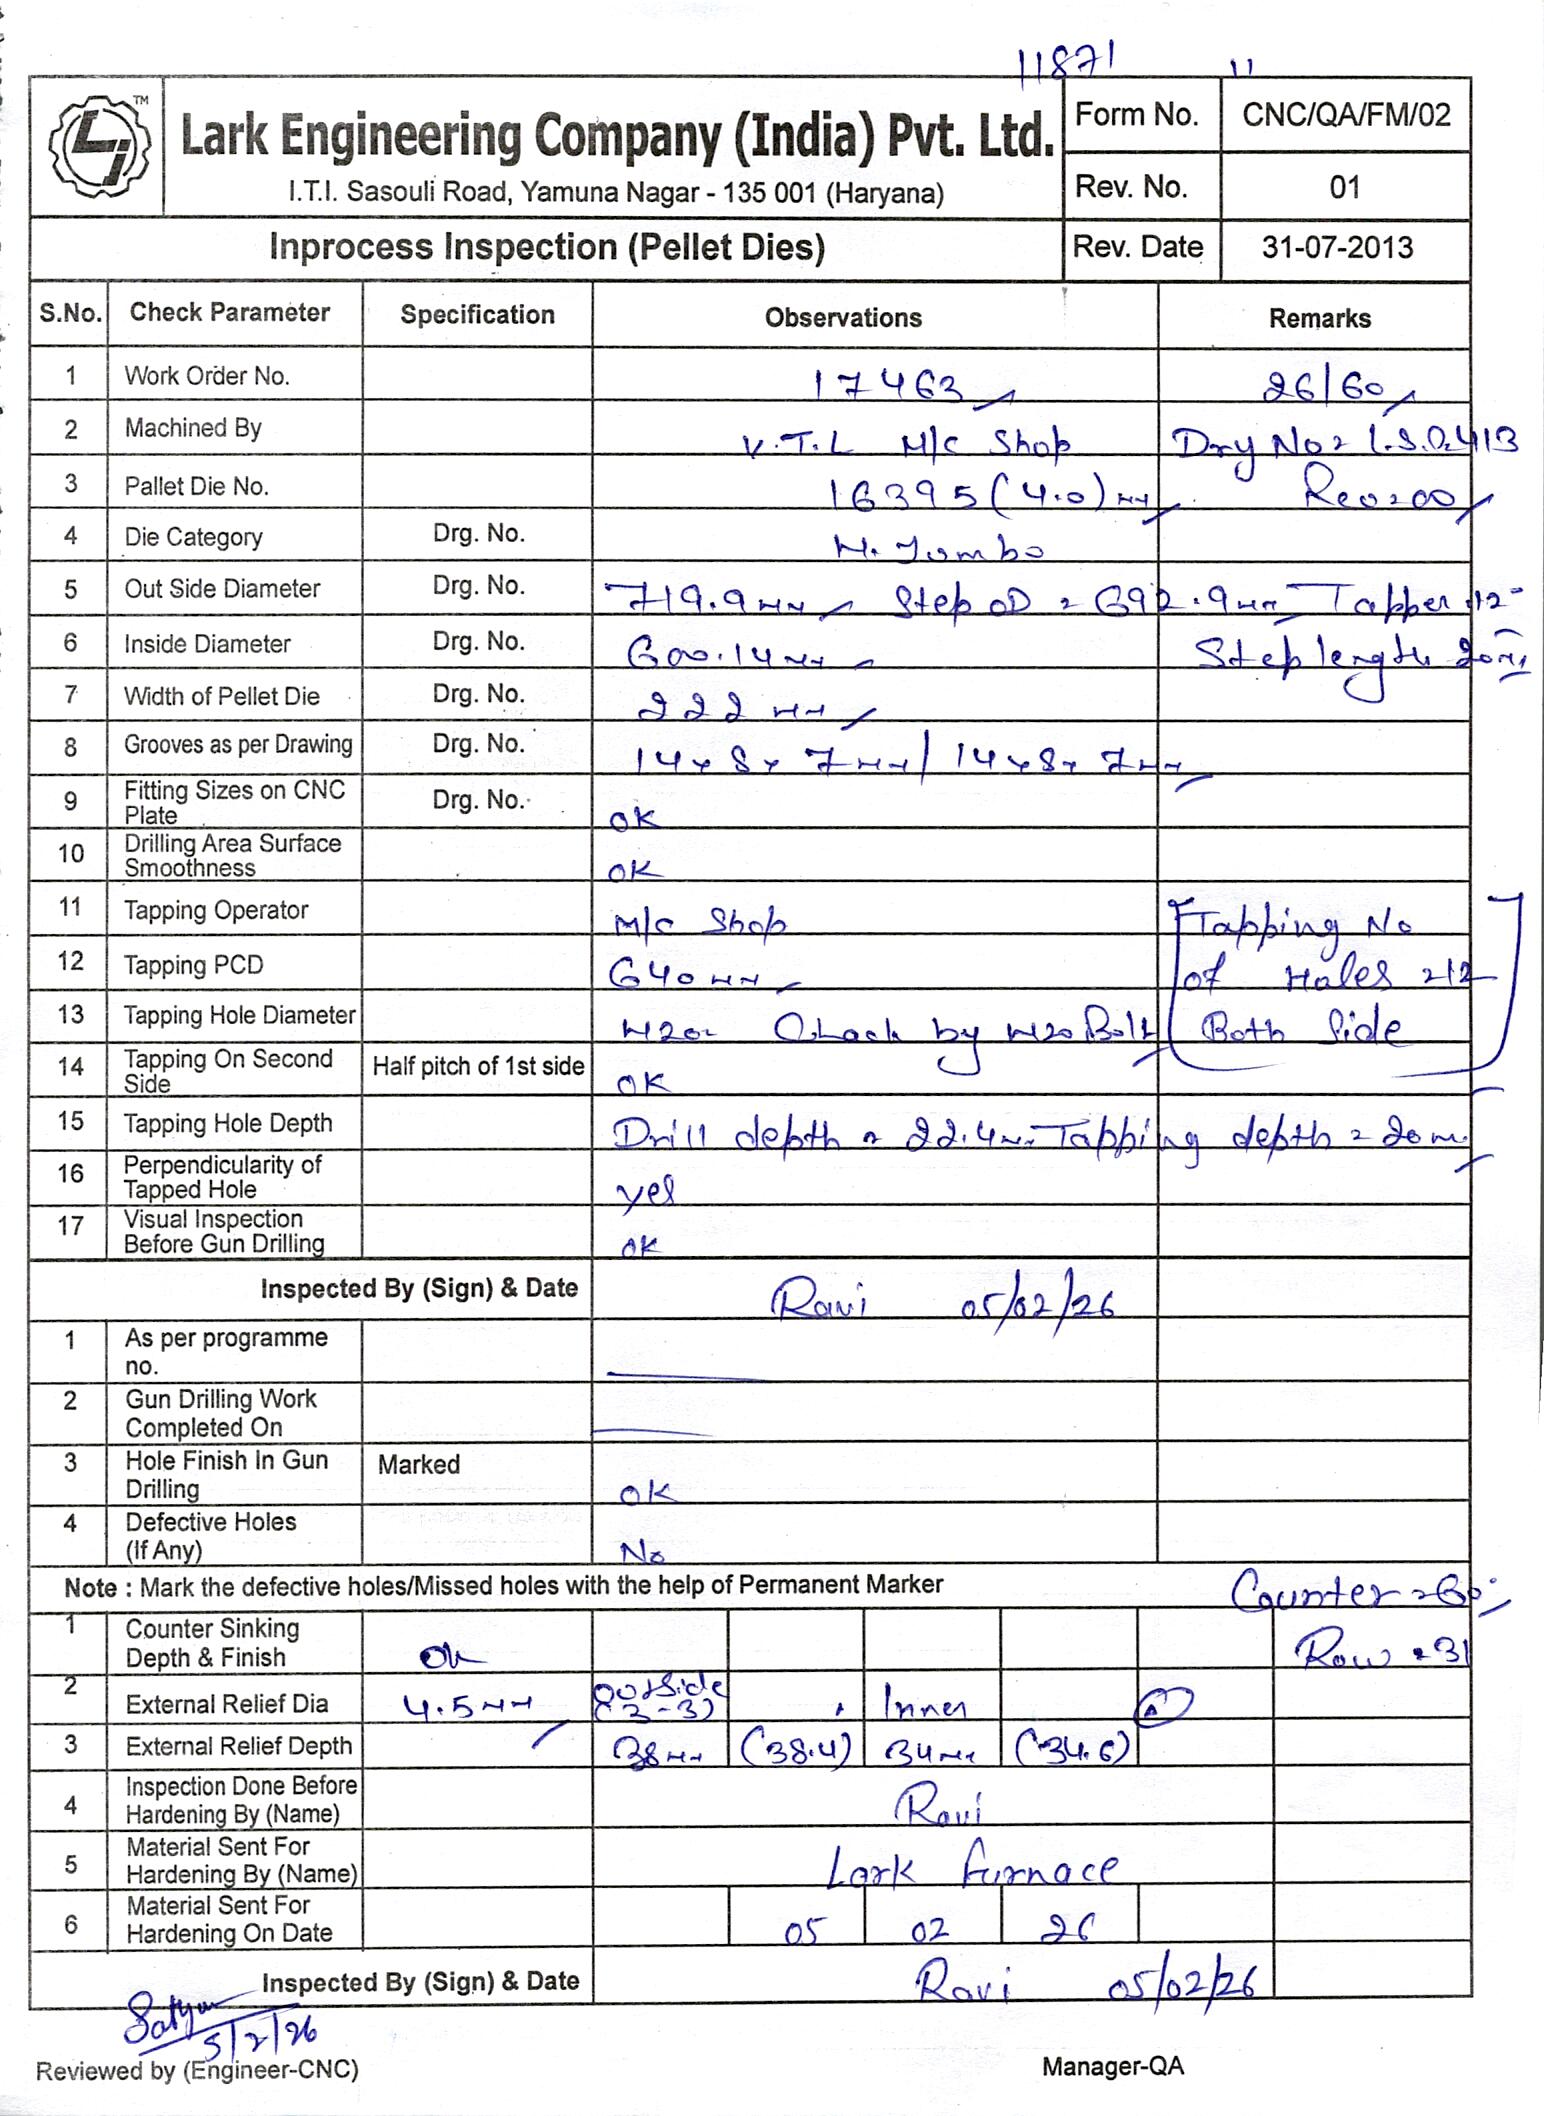 11871 11
TM
Lark Engineering Company (India) Pvt. Ltd.
I.T.I. Sasouli Road, Yamuna Nagar - 135 001 (Haryana)
Form No. CNC/QA/FM/02
Rev. No. 01
Inprocess Inspection (Pellet Dies) Rev. Date 31-07-2013
S.No. Check Parameter Specification Observations Remarks
1 Work Order No. 17463 26/60
2 Machined By V.T.L M/c Shop Drg No = L.S.D.413
3 Pallet Die No. 16395 (4.0) mm Rev=00
4 Die Category Drg. No. H. Jumbo
5 Out Side Diameter Drg. No. 719.9mm Step OD = 692.9mm Tapper 12°
6 Inside Diameter Drg. No. 600.14mm Step length 20mm
7 Width of Pellet Die Drg. No. 222 mm
8 Grooves as per Drawing Drg. No. 14x8x7mm/14x8x7mm
9 Fitting Sizes on CNC Plate Drg. No. OK
10 Drilling Area Surface Smoothness OK
11 Tapping Operator M/c Shop Tapping No
12 Tapping PCD 640mm of Holes =12
13 Tapping Hole Diameter M20= Check by M20 Bolt Both Side
14 Tapping On Second Side Half pitch of 1st side OK
15 Tapping Hole Depth Drill depth = 22.4mm Tapping depth = 20m
16 Perpendicularity of Tapped Hole yes
17 Visual Inspection Before Gun Drilling OK
Inspected By (Sign) & Date Ravi 05/02/26
1 As per programme no.
2 Gun Drilling Work Completed On
3 Hole Finish In Gun Drilling Marked OK
4 Defective Holes (If Any) No
Note : Mark the defective holes/Missed holes with the help of Permanent Marker Counter = 60°
1 Counter Sinking Depth & Finish OK Row = 31
2 External Relief Dia 4.5mm outside (3-3) Inner A
3 External Relief Depth 38mm (38.4) 34mm (34.6)
4 Inspection Done Before Hardening By (Name) Ravi
5 Material Sent For Hardening By (Name) Lark furnace
6 Material Sent For Hardening On Date 05 02 26
Inspected By (Sign) & Date Ravi 05/02/26
5/2/26
Reviewed by (Engineer-CNC) Manager-QA